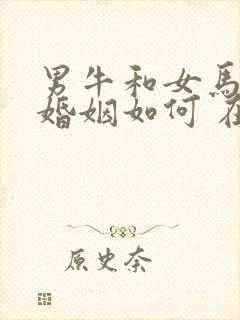 男牛和女馬
婚姻如何
原史奈